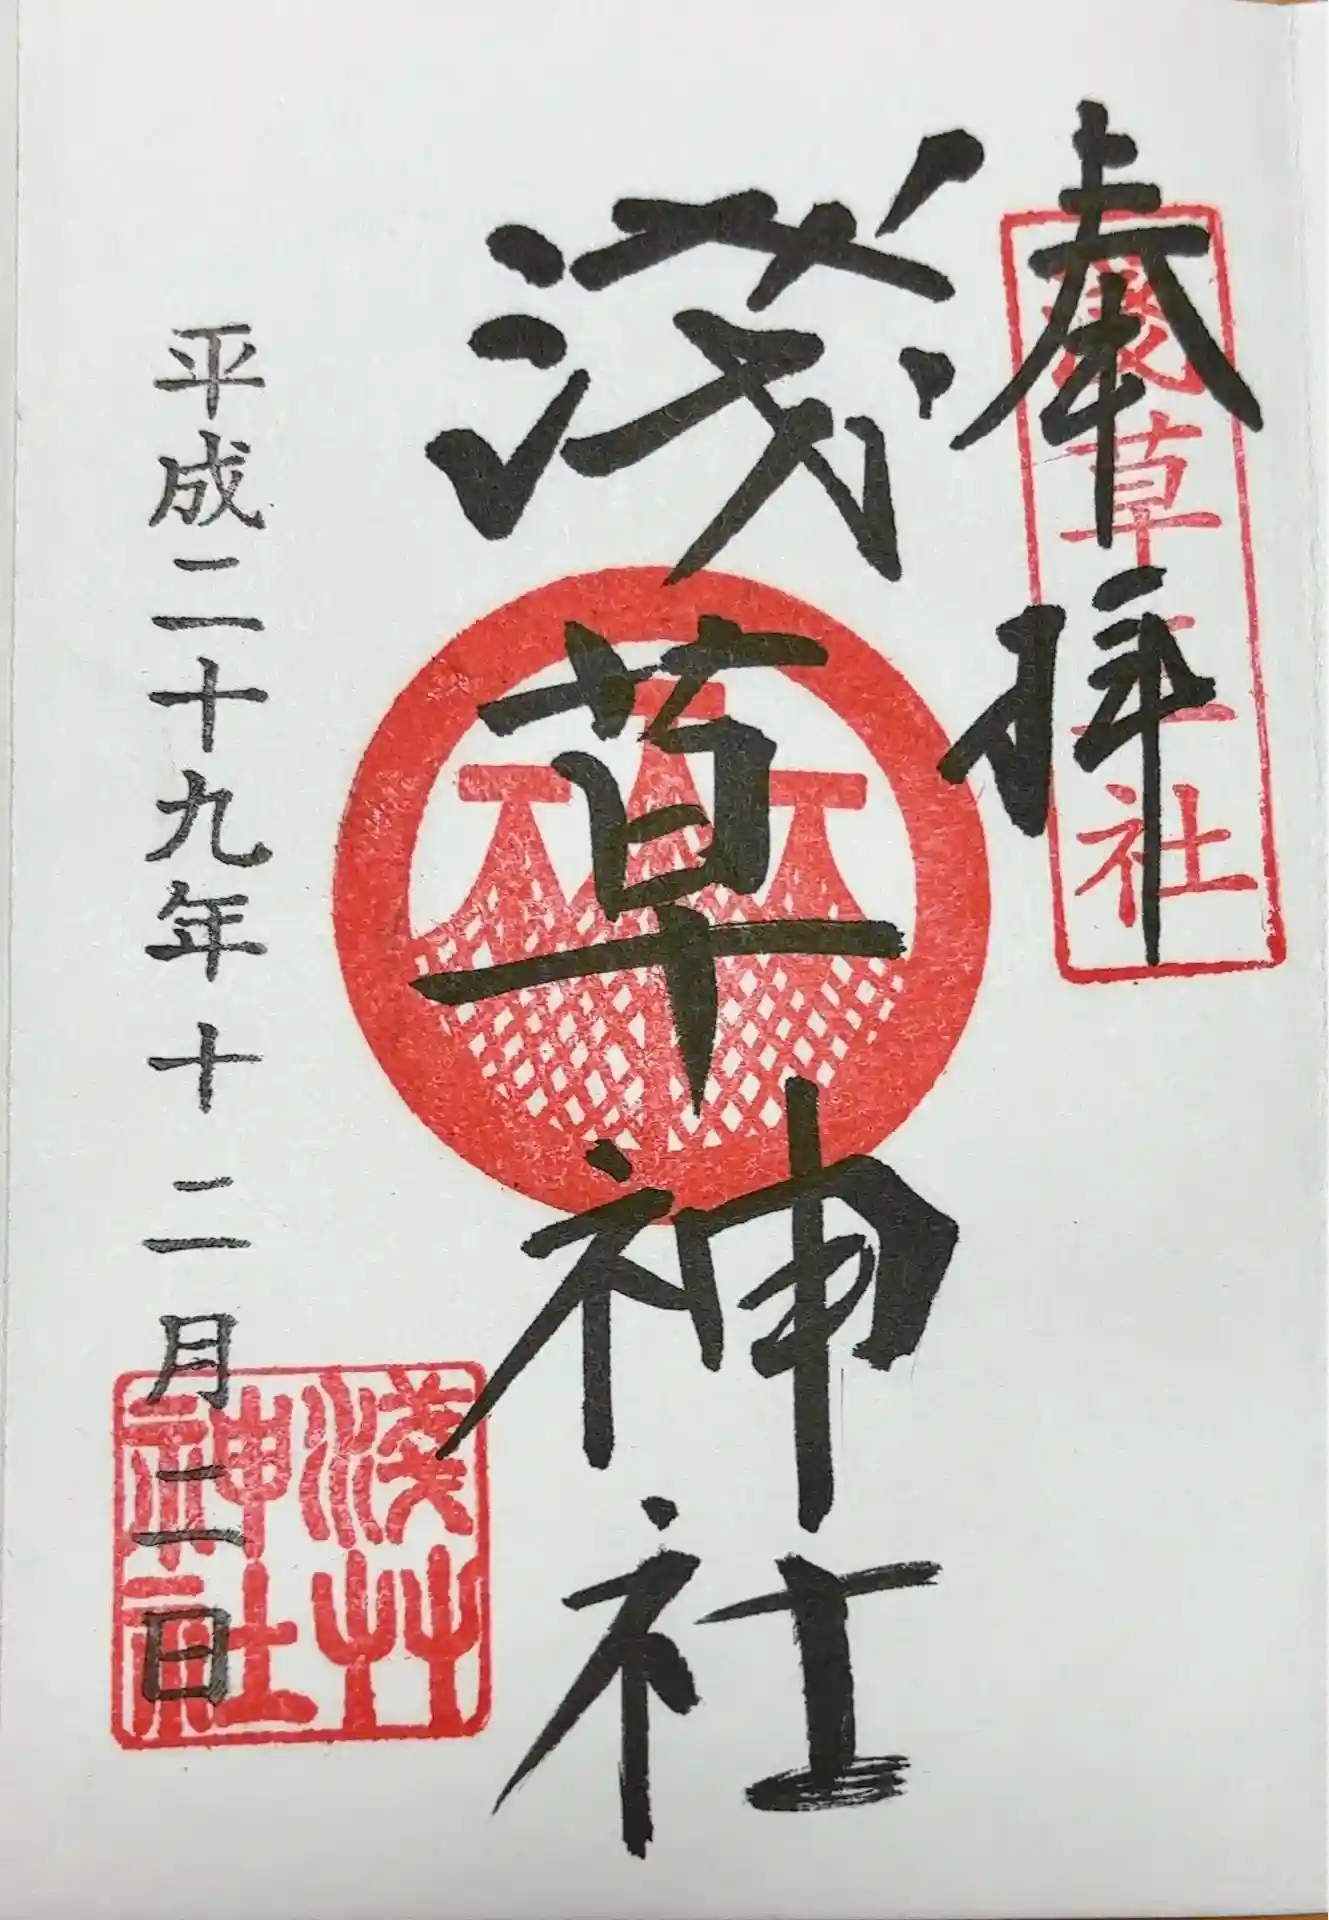 奉拝
浅草三社
淺草神社
平成二十九年十二月二日
淺艸
神社